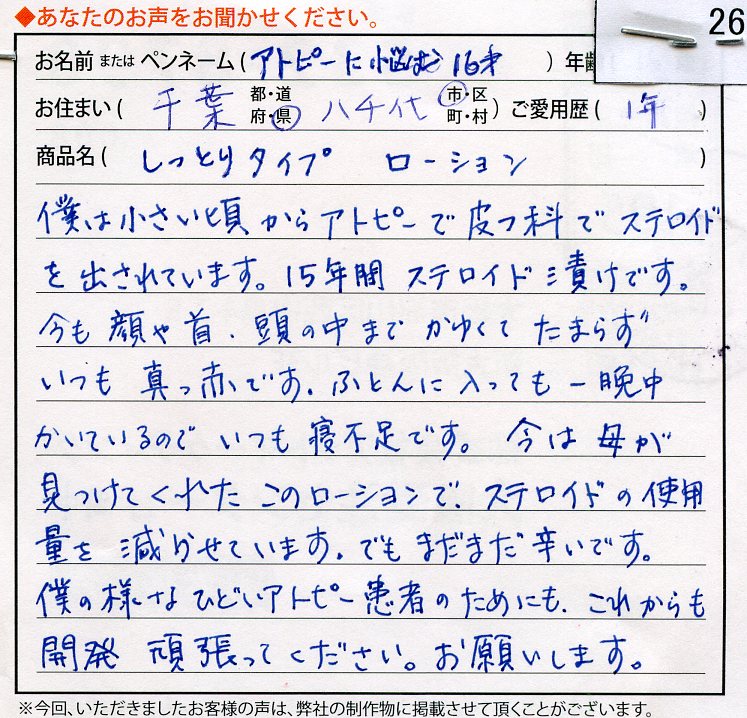 ◆あなたのお声をお聞かせください。
26
お名前 または ペンネーム ( アトピーに悩む 16才 ) 年齢
お住まい ( 千葉 都・道 府・県 八千代 市・区 町・村 ) ご愛用歴 ( 1年 )
商品名 ( しっとりタイプ ローション )
僕は小さい頃からアトピーで皮フ科でステロイド
を出されています。15年間 ステロイド漬けです。
今も 顔や首、頭の中まで かゆくて たまらず
いつも 真っ赤です。ふとんに入っても 一晩中
かいているので いつも 寝不足です。今は 母が
見つけてくれた このローションで、ステロイドの使用
量を 減らせています。でも まだまだ辛いです。
僕の様な ひどいアトピー患者のためにも、これからも
開発 頑張ってください。お願いします。
※今回、いただきましたお客様の声は、弊社の制作物に掲載させて頂くことがございます。